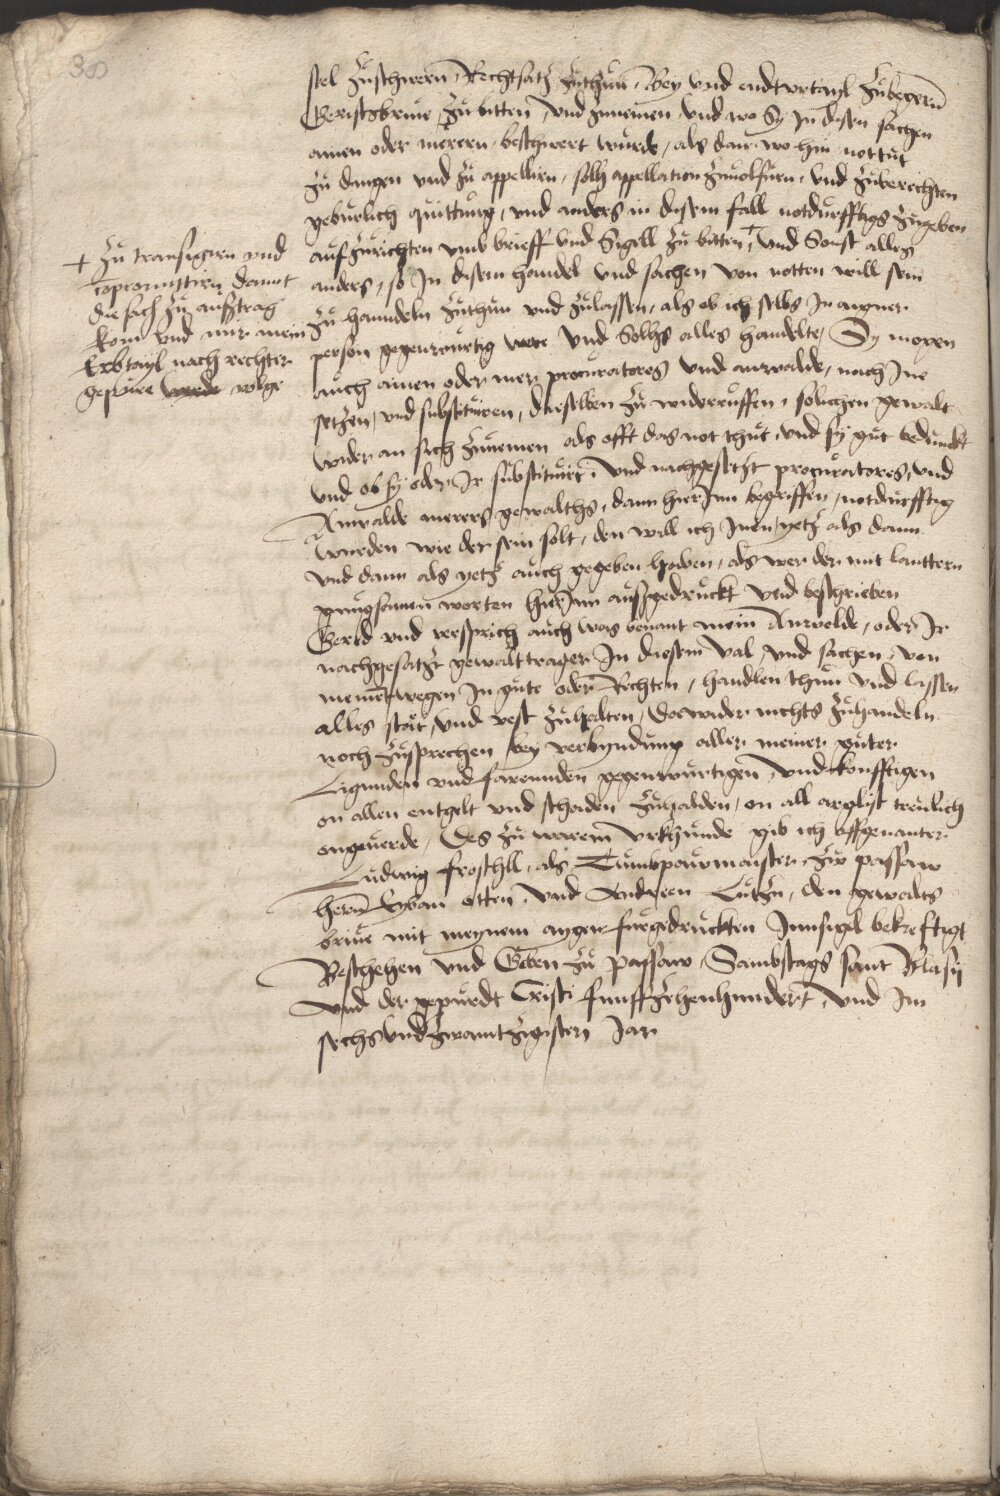 380
stel zuschwern, Rechtsatz zuthun, Bey vnd endtvrtayl zubegern
Gerichtzbrieue, zu bitten, vnd zunemen, vnd wo Sy In disen sachen
ainen oder merern beschwert wurde, als dan wo hin nottut
zu dingen vnd zu appelliern, solh appellation zuuolfurn, vnd zuberechten
geburlich quittung, vnd anders in disem fall notdurfftigs zugeben
aufzurichten vmb brieff vnd Sigill zu bitten, + vnd Sonst alles
anders, so In disem handel vnd sachen von notten will sein
zu hanndeln zuthun vnd zulassen, als ob ich selbs In aigner
person gegenwurtig were vnd Solhs alles handelte, Sy mogen
auch ainen oder mer procuratores vnd anwalde, nach Ine
setzen, vnd substituiren, dieselben zu widerruffen, solichen gewalt
wider an sich zunemen als offt das not thut, vnd sy gut bedunckt
vnd ob sy oder Ir substituirt, vnd nachgesetzt procuratores, vnd
Anwalde merers gewalths, dann hierInn begriffen, notdurfftig
wurden wie der sein solt, den will ich Inen, yetz als dann
vnd dann als yetz auch gegeben haben, als wer der mit lauttern
gnugsamen worten hierInn aufgedruckt vnd beschrieben
Gered vnd versprich auch was benant mein Anwelde, oder Ir
nachgesatzt gewalttrager In diesem val, vnd sachen, von
meinetwegen In gute oder Rechten, handlen thun vnd lassen
alles stat, vnd vest zuhalten, dawider nichts zuhandeln
noch zusprechen bey verbyndung aller meiner guter
Ligunden vnd farennden gegenwurtigen, vnd konfftigen
on allen entgelt vnd schaden zuhalden, on all arglist treulich
ongeuerde, Des zu warem vrkhunde gib ich offgenanter
Ludwig froschll, als Tumbpawmaister zw passaw
hern Erban otten, vnd Andreen Lutzn, den gewalts
brieue mit meynem aygen furgedruckten Innsigel bekrefftigt
Beschehen vnd Geben zu passaw, Sambstags sant Blasy
vnd der gepurdt Cristi funffzehenhundert, vnd Im
sechsvndzwaintzigisten Jar
+ zu transigirn vnd
copromittirn damit
die sach zu austrag
kom vnd mir mein
Erbtayl nach rechter
gepure werde volge